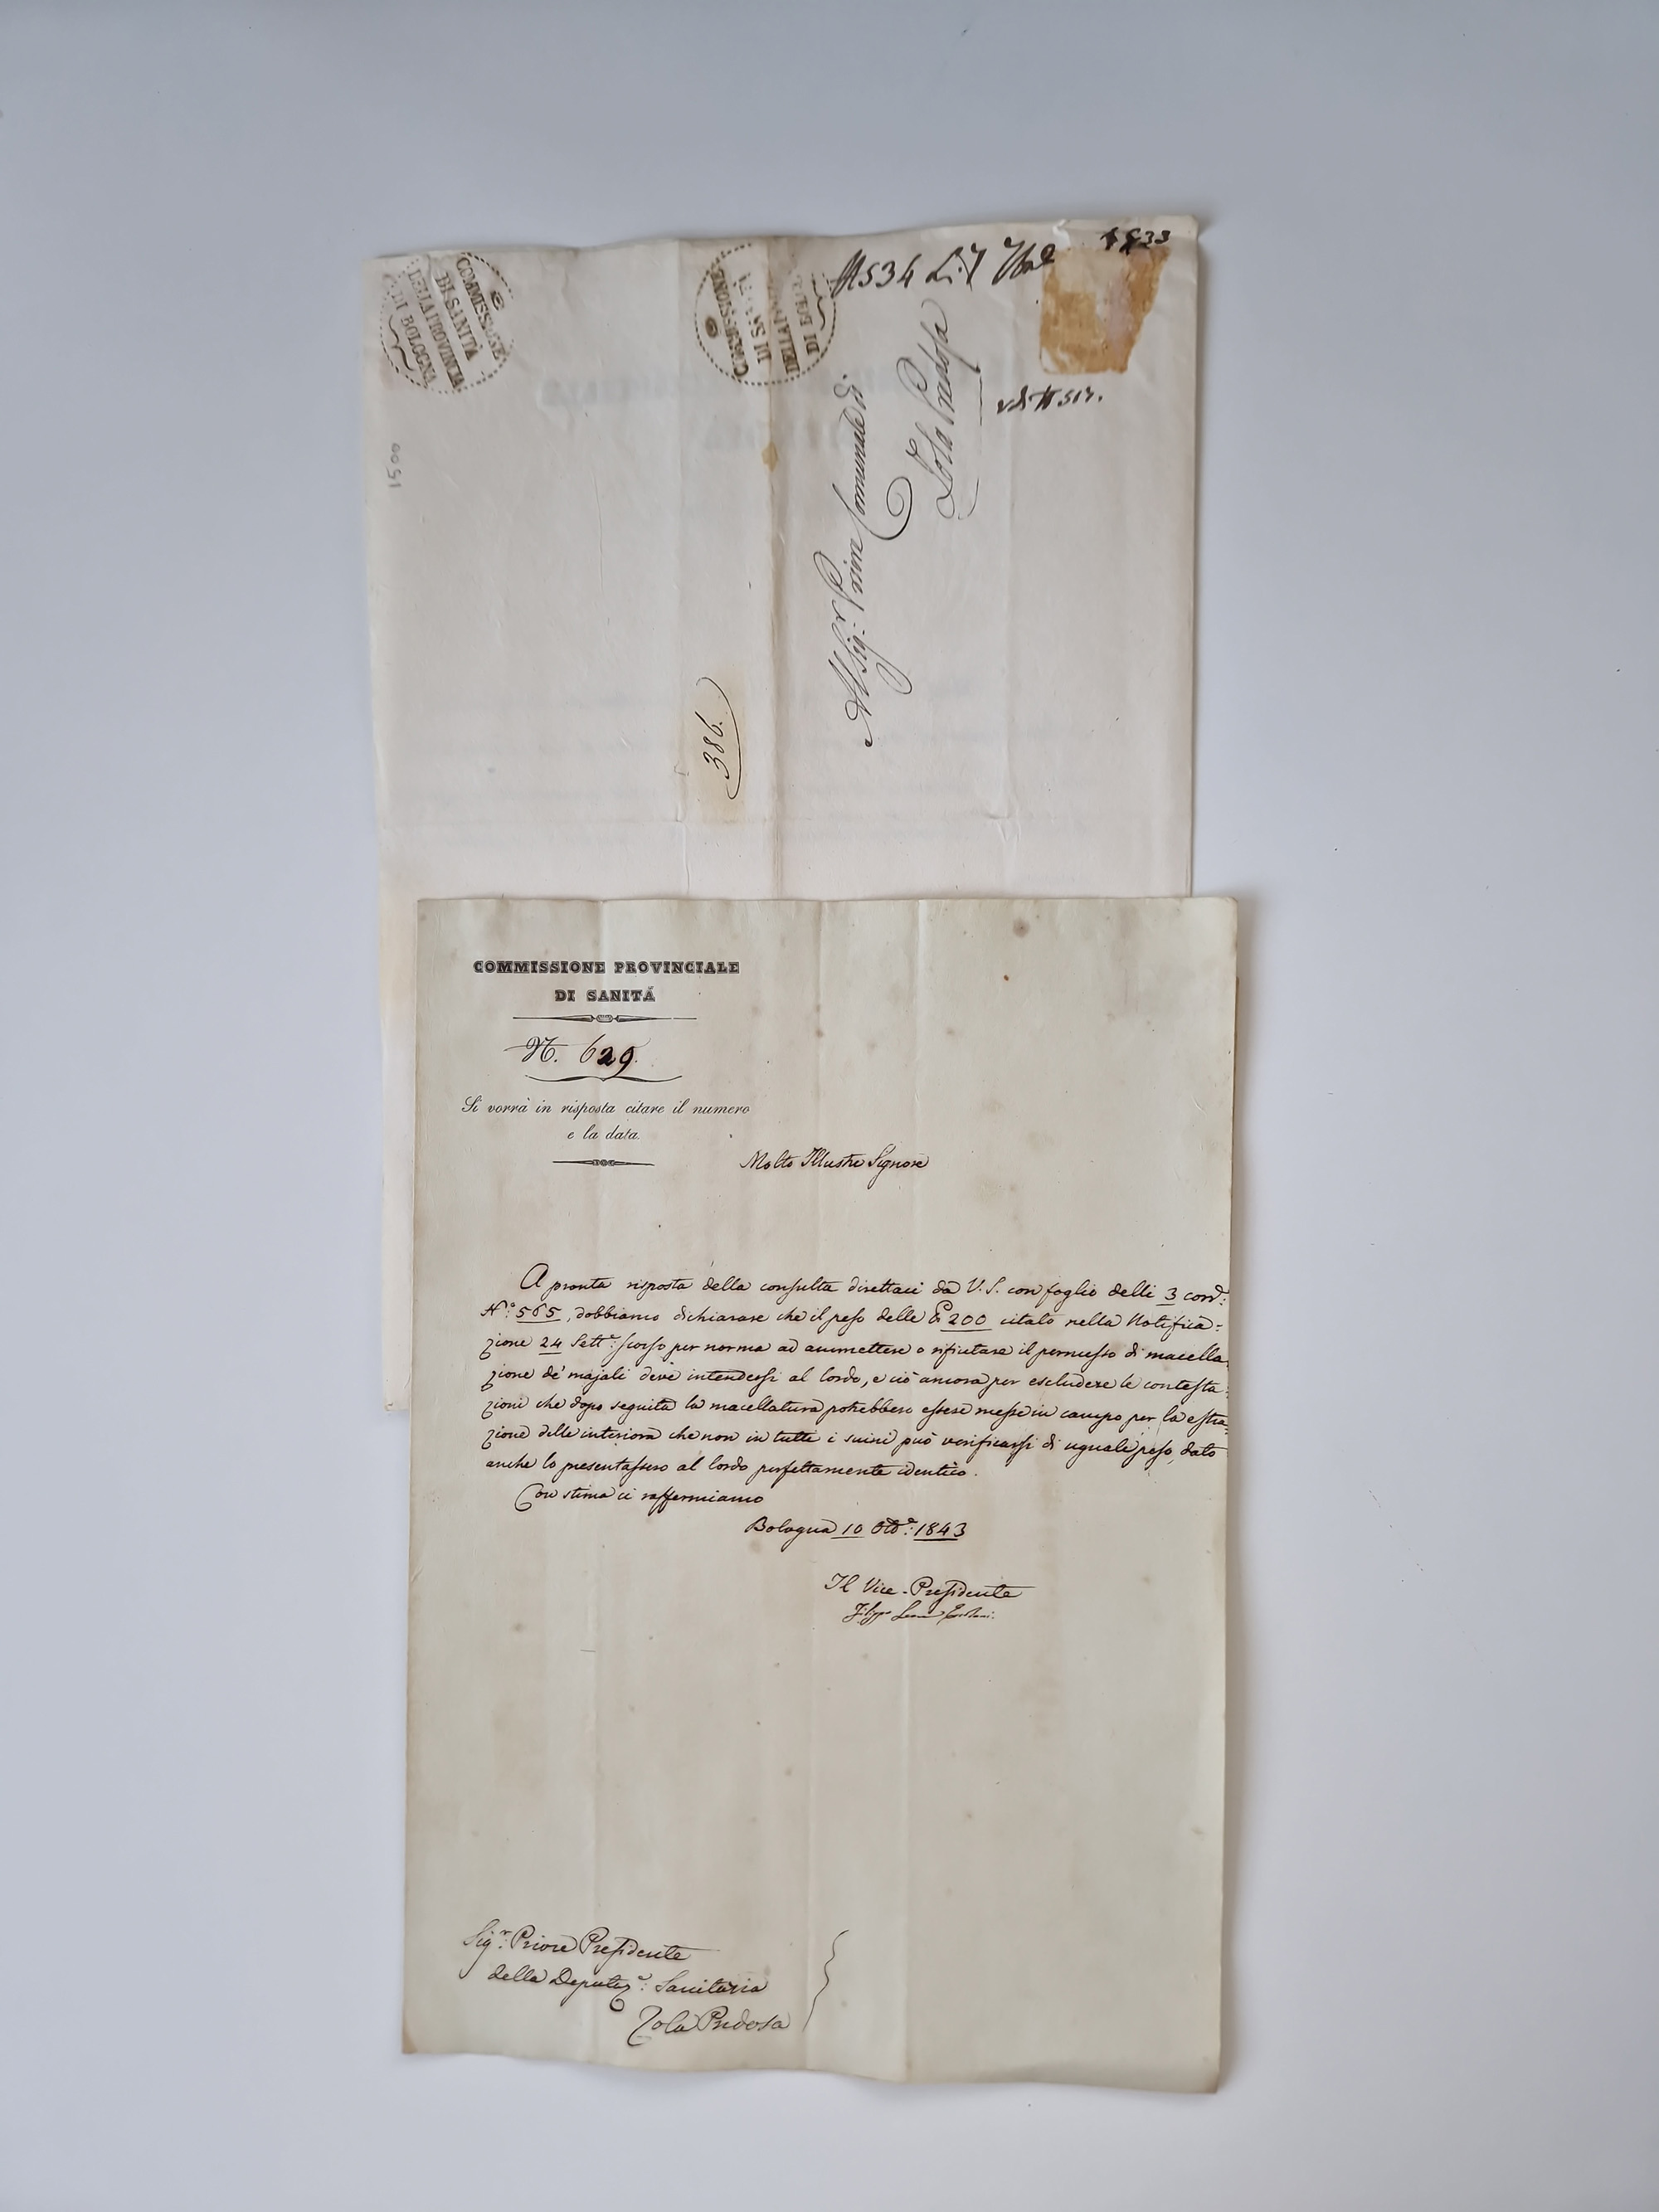 COMMISSIONE
DI SANITÀ
DELLA PROVINCIA
DI BOLOGNA
COMMISSIONE
DI SA
DELLA
DI BOL
1500
386.
Al Sig.r Priore Comunale di
Zola Predosa
COMMISSIONE PROVINCIALE
DI SANITÁ
N. 629.
Si vorrà in risposta citare il numero
e la data.
Molto Illustre Signore
A pronta risposta della consulta direttaci da V. S. con foglio delli 3 corr.e
N.o 565, dobbiamo dichiarare che il peso delle 200 citato nella Notifica=
zione 24 Sett.e scorso per norma ad ammettere o rifiutare il permesso di macella=
zione de' majali deve intendersi al lordo, e ciò ancora per escludere le contesta=
zioni che dopo seguita la macellatura potrebbero essere messe in campo per la estra=
zione delle interiora che non in tutti i suini può verificarsi di uguale peso, dato
anche lo presentassero al lordo perfettamente identico.
Con stima ci raffermiamo
Bologna 10 Ott.e 1843
Il Vice-Presidente
Sig.r Priore Presidente
della Deputaz.e Sanitaria
Zola Predosa